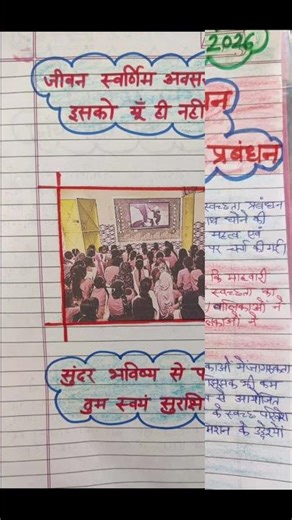 2026
जीवन स्वर्णिम अवस
इसको यूँ ही नही
न
प्रबंधन
स्वच्छता प्रबंधन
थ धोने की
महत्व एवं
पर चर्चा की गई।
कि माहवारी
स्वच्छता का
बालिकाओं ने
सुंदर भविष्य से प
तुम स्वयं सुरक्षि
काओं में जागरूकता
से आयोजित
के स्वच्छ
मिशन के उद्देश्यों